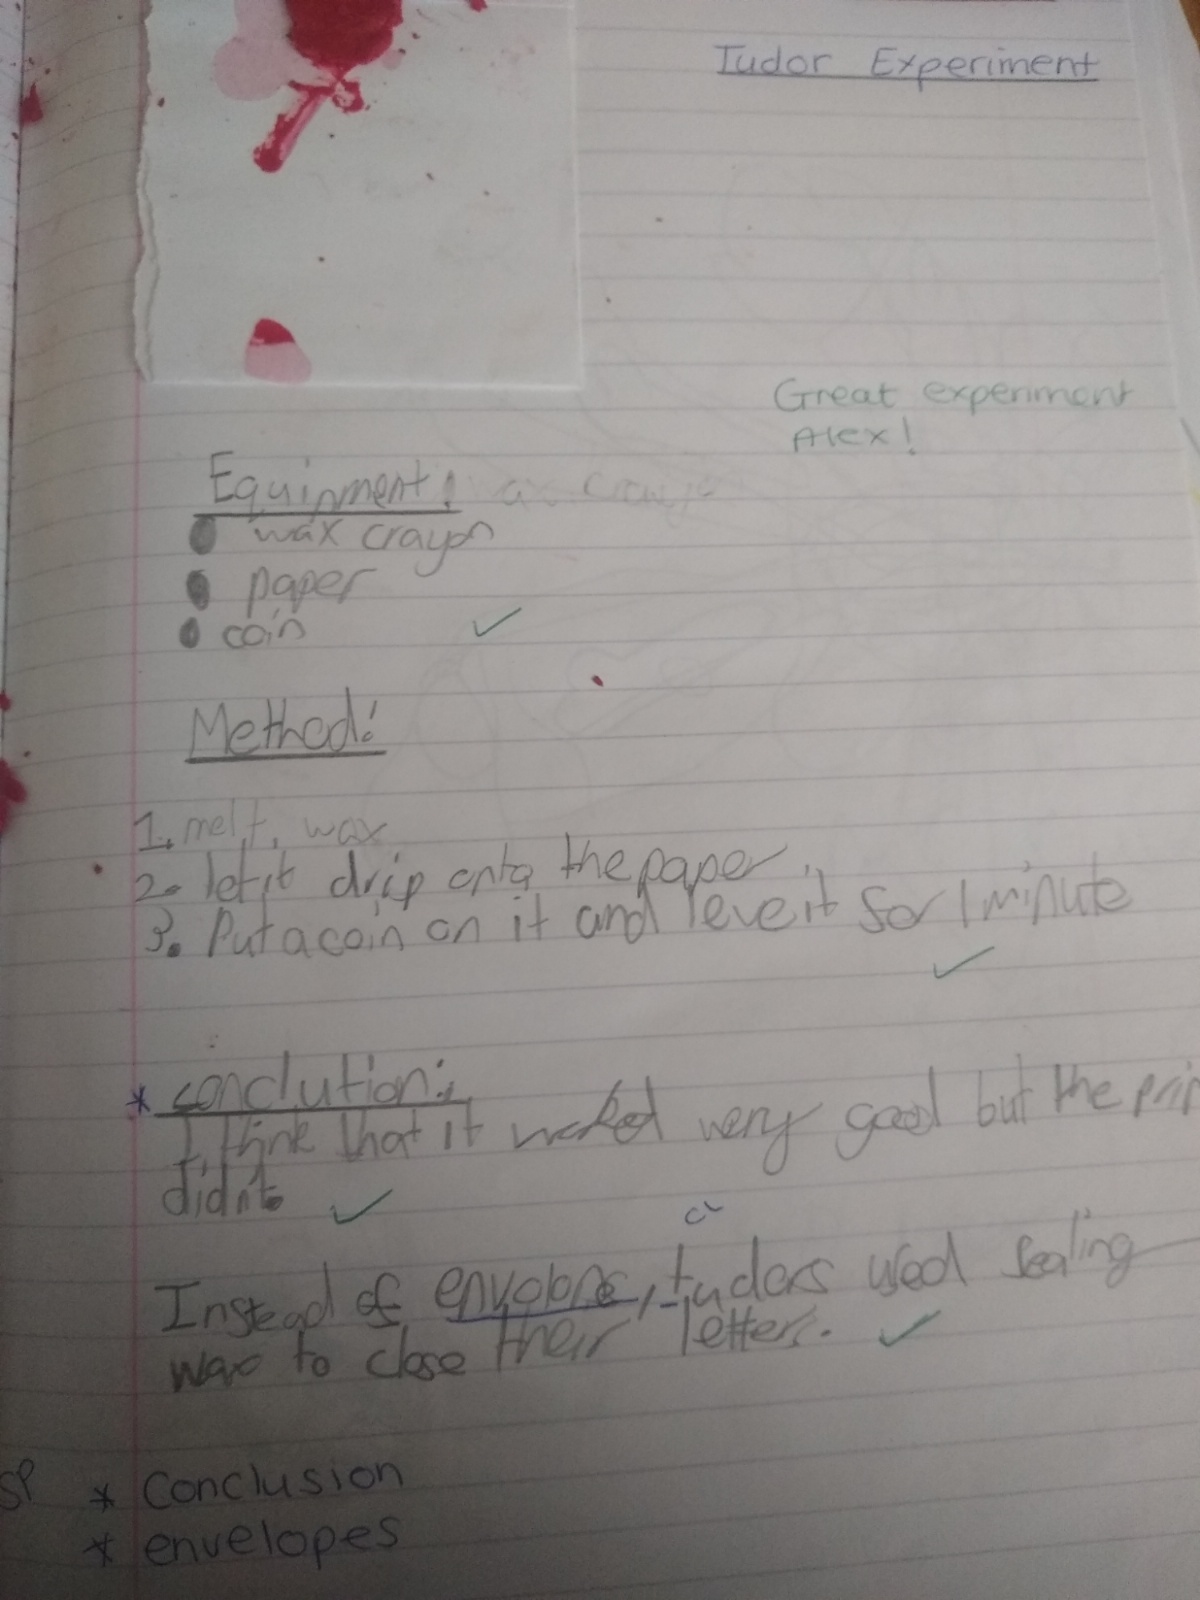 Tudor Experiment
Great experiment
Alex!
Equinment:
wax crayon
paper
coin
Method:
1. melt, wax
2. let it drip onto the paper.
3. Put a coin on it and leve it for 1 minute
* conclution:
I think that it worked very good but the
didn't
Instead of envolope, tudors used sealing
wax to close their letters.
SP * Conclusion
* envelopes